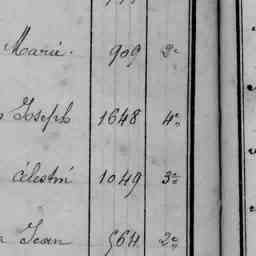 Marie. 909 2e
Joseph 1648 4e
élestin 1049 3e
Jean 564 2e